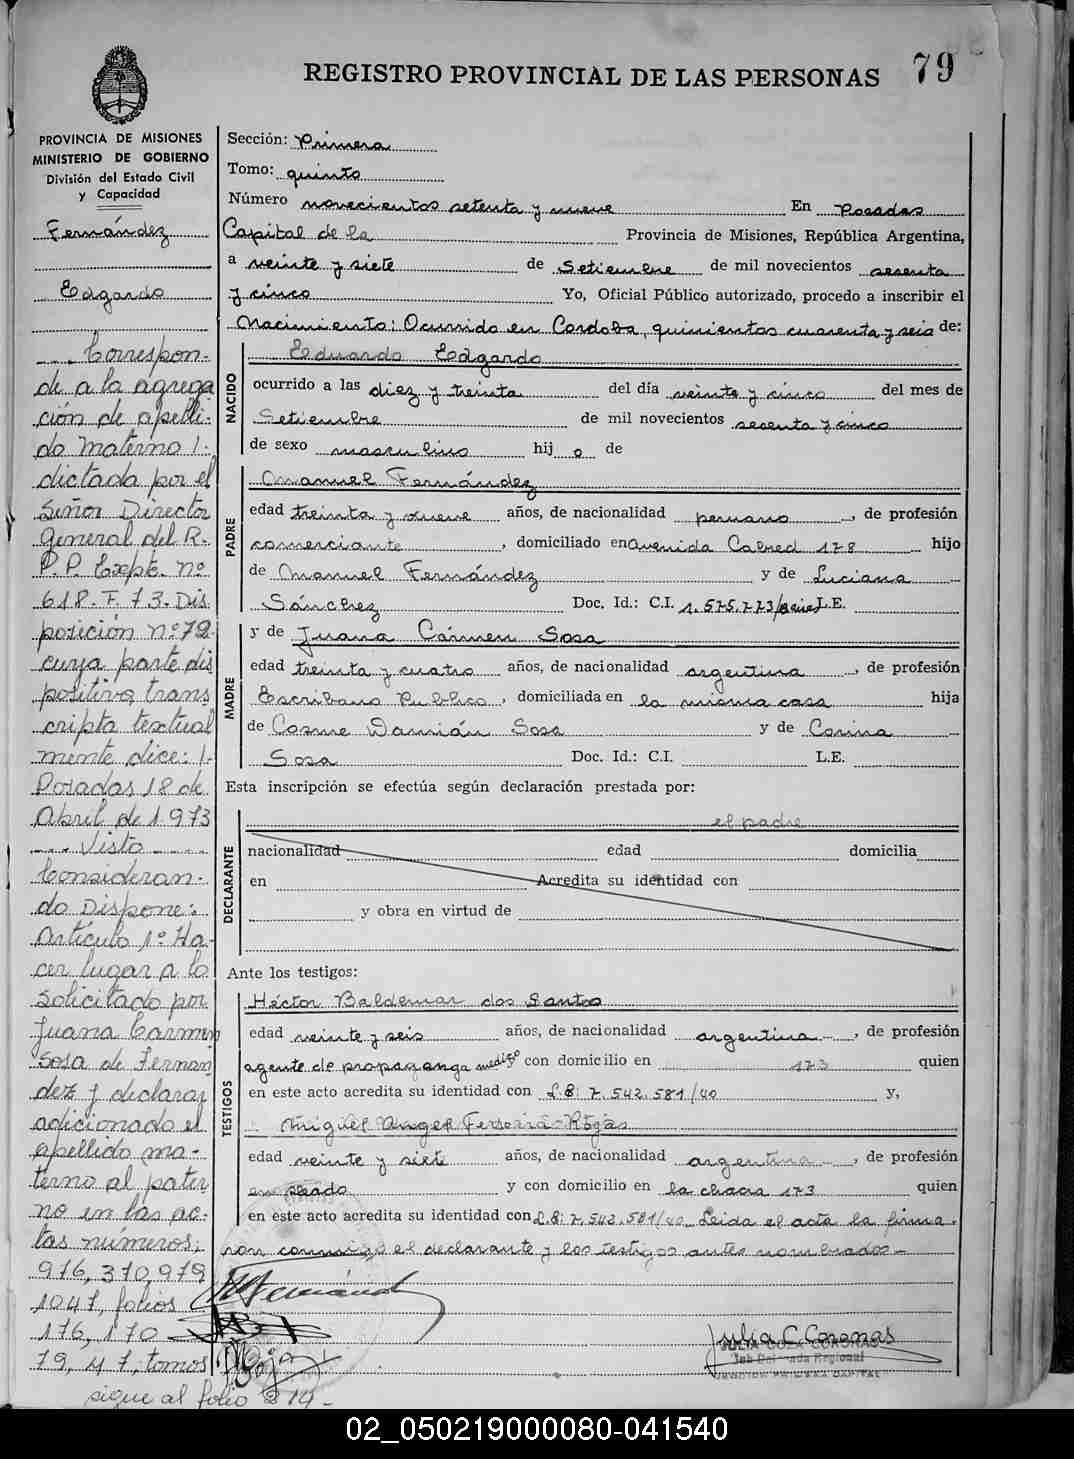 REGISTRO PROVINCIAL DE LAS PERSONAS 79
PROVINCIA DE MISIONES
MINISTERIO DE GOBIERNO
División del Estado Civil
y Capacidad
Fernández
Edgardo
Correspon-
de a la agrega
ción de apelli-
do materno
dictada por el
Señor Director
General del R.
P. P. Expte. nº
618. F. 73. Dis
posición nº 79
cuya parte dis
positiva, trans
cripta textual
mente dice:
Posadas 18 de
Abril de 1973
Visto
Consideran-
do Dispone:
Artículo 1º Ha-
cer lugar a lo
solicitado por
Juana Carmen
Sosa de Fernan
dez y declarar
adicionado el
apellido ma-
terno al pater
no en las ac-
tas números,
976, 370, 979
1047, folios
176, 170
79, 47, tomos
sigue al folio 214-
Sección: Primera
Tomo: quinto
Número novecientos setenta y nueve En Posadas
Capital de la Provincia de Misiones, República Argentina,
a veinte y siete de Setiembre de mil novecientos sesenta
y cinco Yo, Oficial Público autorizado, procedo a inscribir el
Nacimiento: Ocurrido en Cordoba, quinientos cuarenta y seis de:
NACIDO
Eduardo Edgardo
ocurrido a las diez y treinta del día veinte y cinco del mes de
Setiembre de mil novecientos sesenta y cinco
de sexo masculino hij o de
PADRE
Manuel Fernández
edad treinta y nueve años, de nacionalidad peruano, de profesión
comerciante, domiciliado en Avenida Cabred 178 hijo
de Manuel Fernández y de Luciana
Sánchez Doc. Id.: C.I. 1.575.773/ L.E.
MADRE
y de Juana Cármen Sosa
edad treinta y cuatro años, de nacionalidad argentina, de profesión
Escribano Publico, domiciliada en la misma casa hija
de Cosme Damián Sosa y de Corina
Sosa Doc. Id.: C.I. L.E.
Esta inscripción se efectúa según declaración prestada por:
DECLARANTE
el padre
nacionalidad edad domicilia
en Acredita su identidad con
y obra en virtud de
Ante los testigos:
TESTIGOS
Héctor Baldemar dos Santos
edad veinte y seis años, de nacionalidad argentina, de profesión
agente de propaganga medigo y con domicilio en 173 quien
en este acto acredita su identidad con L.E: 7.542.581/40 y,
Miguel Angel Ferreira Rojas
edad veinte y siete años, de nacionalidad argentina, de profesión
empleado y con domicilio en la chacra 173 quien
en este acto acredita su identidad con L.E: 7.542.581/40. Leida el acta la firma-
ron conmigo el declarante y los testigos antes nombrados-
Julia C. Coronas
JULIA COZA CORONAS
02_050219000080-041540